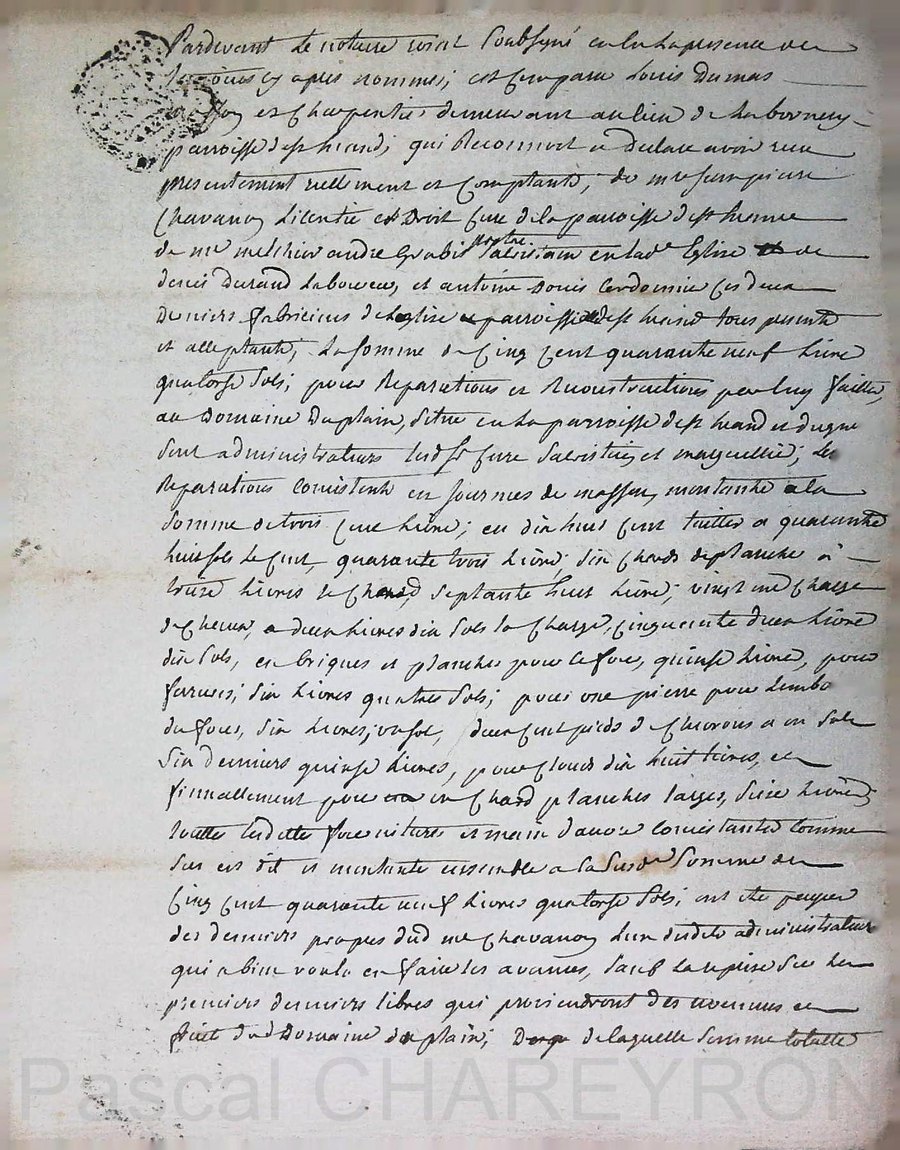 Pardevant le notaire royal soubsigné en la presence des
temoins cy apres nommes; est comparu Louis Dumas
masson et Charpentier demeurant au lieu de
parroisse dest heand; qui Reconnoit et declare avoir receu
presentement reellement et Comptant; de mre Jean pierre
Chavanon Licentié es Droit Cure de la parroisse dest heand
de mre melchior andre Grubis pretre sacristain en lade Eglise et de
denis Durand Laboureur, et antoine Louis Cordonnier Ces deux
Derniers fabriciens de leglise et parroisse dest heand tous presents
et acceptants; La somme de Cinq Cent quarante neuf Livre
quatorse sols; pour Reparations et Reconstructions par luy faittes
au Domaine Duplain, situe en la parroisse dest heand et duquel
sont administrateurs lesd srs Cure Sacristain et marguellier; Les
Reparations Consistent en Journes de masson, montante a la
somme de trois Cent Livre; en dix huit Cent tuilles a quarante
huit sols le Cent, quarante trois Livre; six Chards de planche a
treize Livres le Chard, septante huit Livre; vingt une Charge
de Cheaux, a deux Livres dix sols la Charge, Cinquante deux Livre
dix sols, en briques et planches pour le four, quinse Livre, pour
ferures; dix Livres quatres sols; pour une pierre pour
du four, six Livres; deux Cent pieds de Chevrons a un sols
six deniers quinse Livres, pour Clouds dix huit Livres, et
finnallement pour un Chard planches larges, seise Livres
toutte lesditte fournitures et main d'euvre Consistantes Comme
sus est dit et montante ensemble a la susde somme de
Cinq Cent quarante neuf Livres quatorse sols; ont ete payees
des deniers propres dud mre Chavanon Lun desdits administrateurs
qui a bien voulu en faire les avances, sauf la reprise sur les
premiers deniers libres qui proviendront des revenus et
fruit dud Domaine du plain; de laquelle somme totalle
Pascal CHAREYRON